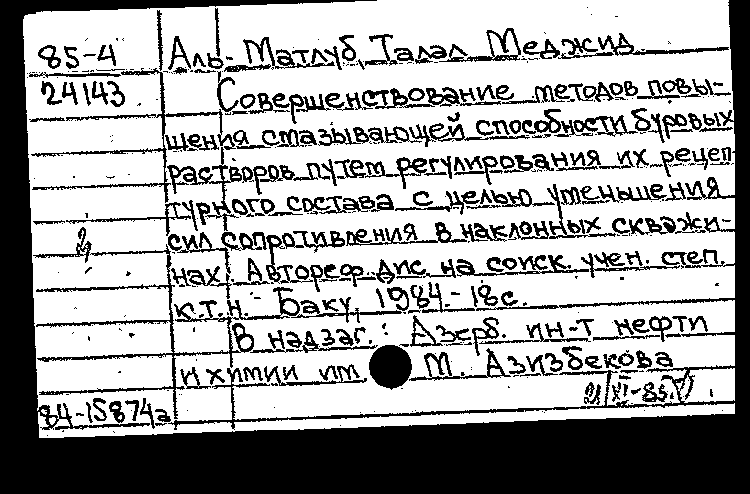 85-4 Аль-Матлуб, Талал Меджид.
24143 Совершенствование методов повы-
шения смазывающей способности буровых
растворов путем регулирования их рецеп
турного состава с целью уменьшения
сил сопротивления в наклонных скважи-
нах: Автореф. дис. на соиск. учен. степ.
к.т.н. - Баку, 1984.-18с.
В надзаг.: Азерб. ин-т нефти
и химии им. М. Азизбекова
21/XI-85
84-15874а